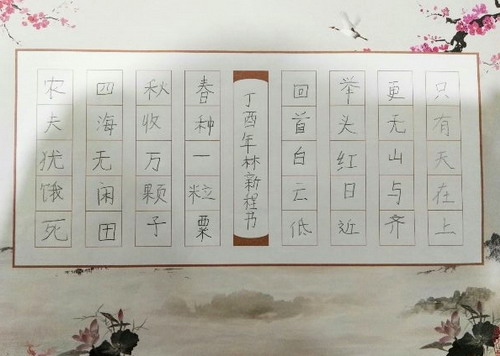 只有天在上
更无山与齐
举头红日近
回首白云低
丁酉年林新程书
春种一粒粟
秋收万颗子
四海无闲田
农夫犹饿死